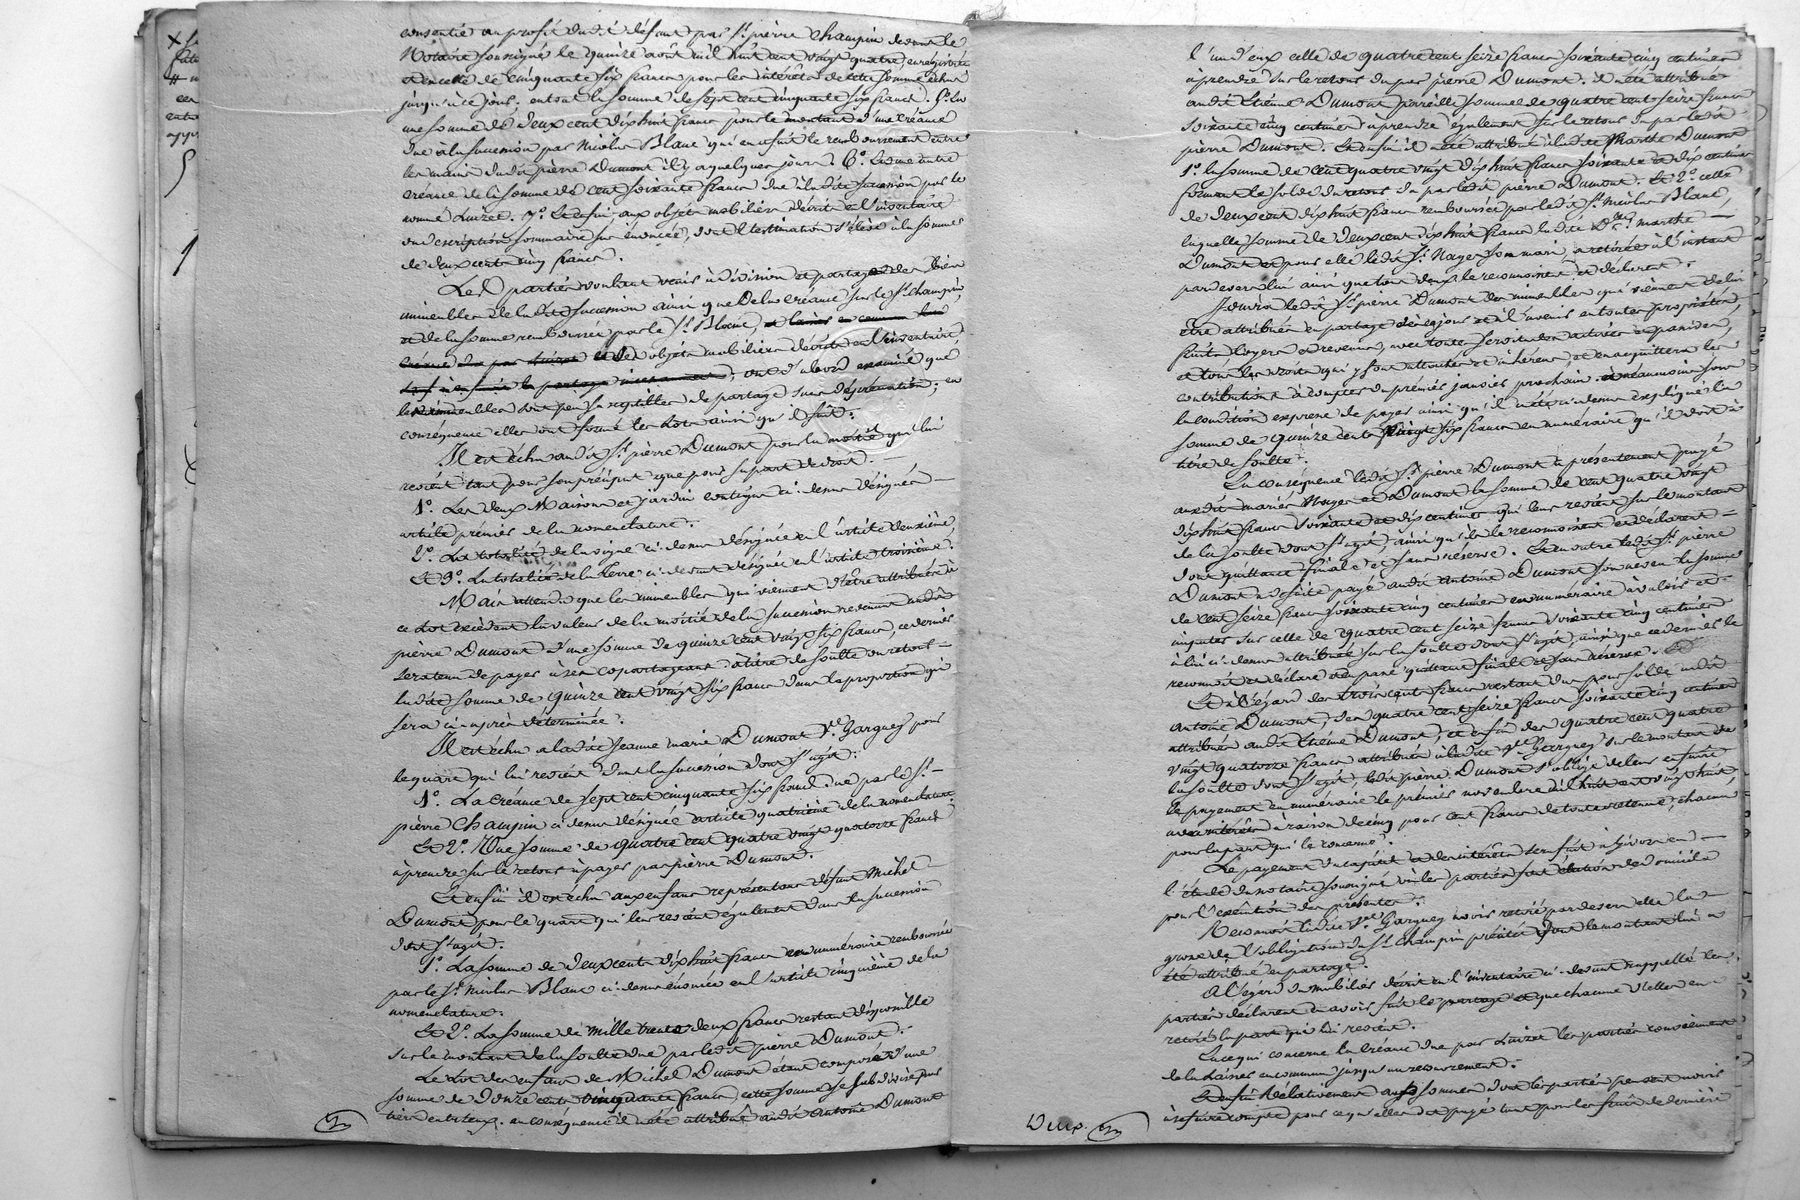 consentie au profit dudit défunt par Sr. pierre Champin devant le
Notaire soussigné le quinze août mil huit cent vingt quatre, enregistrée
et en celle de cinquante six francs pour les intérêts de cette somme échus
jusqu'à ce jour. en tout la somme de sept cent cinquante six francs. 5° En
une somme de deux cent dix huit francs pour le montant d'une créance
due à la succession par Nicolas Blanc qui en a fait le remboursement entre
les mains dudit pierre Dumont il y a quelques jours. 6° En une autre
créance de la somme de cent soixante francs due à ladite succession par le
nommé Luizet. 7° Et enfin, aux objets mobiliers décrits en l'inventaire
ou description sommaire sus énoncée, dont l'estimation s'élève à la somme
de deux cent cinq francs.
Les parties voulant venir à division et partage des biens
immeubles de ladite succession ainsi que de la créance sur le Sr. champin,
et de la somme remboursée par le Sr. Blanc,
objets mobiliers décrits en l'inventaire
ont d'abord examiné que
les immeubles sont peu susceptibles de partage sans dépréciation; en
conséquence elles ont formé les lots ainsi qu'il suit.
Il est échu audit Sr. pierre Dumont pour la moitié qui lui
revient tant pour son préciput que pour sa part de droit.
1° Les deux Maisons et jardin contigus ci-devant désignés
article premier de la nomenclature.
2° La totalité de la vigne ci-devant désignée en l'article deuxième,
Et 3° La totalité de la Terre ci-devant désignée en l'article troisième.
Mais attendu que les immeubles qui viennent d'être attribués à
ce Lot excèdent la valeur de la moitié de la succession revenant audit
pierre Dumont d'une somme de quinze cent vingt six francs, ce dernier
sera tenu de payer à ses copartageans à titre de soulte ou retour
ladite somme de quinze cent vingt six francs dans la proportion qui
sera ci-après déterminée.
Il est échu à ladite Jeanne marie Dumont Ve. Garguey pour
le quart qui lui revient dans la succession dont s'agit.
1° La créance de sept cent cinquante six francs due par le Sr.
pierre Champin ci-devant désignée article quatrième de la nomenclature.
Et 2° Une somme de quatre cent quatre vingt quatorze francs
à prendre sur le retour à payer par pierre Dumont.
Et enfin il est échu aux enfans représentans défunt Michel
Dumont pour le quart qui leur revient également dans la succession
dont s'agit.
1° La somme de deux cents dix huit francs en numéraire remboursée
par le Sr. Nicolas Blanc ci-devant énoncée en l'article cinquième de la
nomenclature.
Et 2° La somme de Mille trente deux francs restant disponible
sur le montant de la soulte due par ledit pierre Dumont.
Le Lot des enfans de Michel Dumont étant composé d'une
somme de douze cents cinquante francs, cette somme se subdivise par
tiers entr'eux. en conséquence il a été attribué audit Antoine Dumont
l'un d'eux celle de quatre cent seize francs soixante cinq centimes
à prendre sur le retour du par pierre Dumont. il a été attribué
audit Etienne Dumont pareille somme de quatre cent seize francs
soixante cinq centimes à prendre également sur le retour du par ledit
pierre Dumont. Et enfin il a été attribué à ladite Marthe Dumont
1° la somme de cent quatre vingt dix huit francs soixante et dix centimes
formant le solde du retour du par ledit pierre Dumont. Et 2° celle
de deux cent dix huit francs remboursée par ledit Sr. Nicolas Blanc,
laquelle somme de deux cent dix huit francs ladite Dme. marthe
Dumont et pour elle ledit Sr. Nayer son mari, a retirée à l'instant
par devers lui ainsi que tous deux le reconnoissent et déclarent.
Jouira ledit Sr. pierre Dumont des immeubles qui viennent de lui
être attribués en partage dès ce jour et à l'avenir en toute propriété,
fruits, loyers et revenus, avec toutes servitudes actives et passives,
et tous les droits qui y sont attachés et inhérens et en acquittera les
contributions à compter du premier janvier prochain. et néanmoins sous
la condition expresse de payer ainsi qu'il a été ci-devant expliqué la
somme de quinze cents vingt six francs en numéraire qu'il doit à
titre de soulte.
En conséquence ledit Sr. pierre Dumont a présentement payé
auxdits mariés Nayer et Dumont la somme de cent quatre vingt
dix huit francs soixante et dix centimes qui leur revient sur le montant
de la soulte dont s'agit, ainsi qu'ils le reconnoissent et déclarent
dont quittance finale et sans réserve. Et en outre ledit Sr. pierre
Dumont a de suite payé audit Antoine Dumont son neveu la somme
de cent seize francs soixante cinq centimes en numéraire à valoir et
imputer sur celle de quatre cent seize francs soixante cinq centimes
à lui ci-devant attribuée sur la soulte dont s'agit ainsi que ce dernier le
reconnoît et déclare et en passe quittance finale et sans réserve.
Et à l'égard des trois cents francs restant dus pour solde audit
Antoine Dumont, des quatre cent seize francs soixante cinq centimes
attribués audit Etienne Dumont, et enfin des quatre cent quatre
vingt quatorze francs attribués à ladite Ve. Garguey sur le montant de
la soulte dont s'agit, ledit pierre Dumont s'oblige de leur en faire
le payement en numéraire le premier novembre dix huit cent vingt huit
avec intérêts à raison de cinq pour cent francs de toute retenue, chacun
pour la part qui le concerne.
Le payement du capital et des intérêts sera fait à Givors en
l'étude du notaire soussigné où les parties font élection de domicile
pour l'exécution des présentes.
Reconnoît ladite Ve. Garguey avoir retiré par devers elle la
grosse de l'obligation du Sr. Champin précitée dont le montant lui a
été attribué en partage.
A l'égard du mobilier décrit en l'inventaire ci-devant rappellé les
parties déclarent en avoir fait le partage et que chacune d'elles en a
retiré la part qui lui revient.
En ce qui concerne la créance due par Luizet les parties conviennent
de la laisser en commun jusqu'au recouvrement.
Et enfin Relativement aux sommes dont les parties peuvent avoir
à se faire compte pour ce qu'elles ont payé tant pour les frais de dernière
Deux.